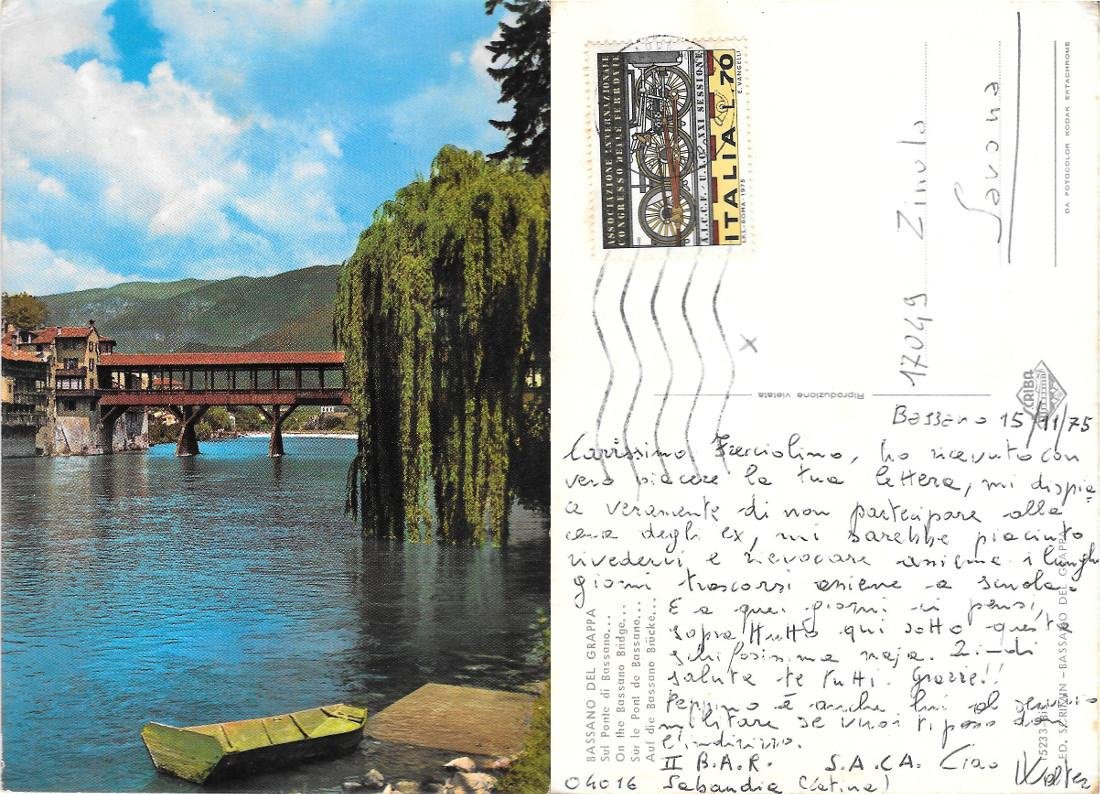 ASSOCIAZIONE INTERNAZIONALE
CONGRESSO DELLE FERROVIE
A.I.C.C.F. - U.I.C. XXI SESSIONE
ITALIA L.70
I.P.S.-ROMA-1975 E. VANGELLI
17049 Zinola
Savona
DA FOTOCOLOR KODAK EKTACHROME
Riproduzione vietata
SCRIBA
Bassano 15/11/75
Carissimo, ho ricevuto con
vero piacere la tua lettera, mi dispia-
a veramente di non partecipare alla
cena degli ex, mi sarebbe piaciuto
rivederci e rievocare assieme i lunghi
giorni trascorsi assieme a scuola.
E a quei giorni ci pensi,
soprattutto qui sotto questa
schifosissima naja.
saluta te tutti. Grazie!!
Peppino è anche lui al servizio
militare se vuoi ti posso dare
l'indirizzo.
II B.A.R. S.A.C.A. Ciao Walter
04016 Sabaudia (Latina)
BASSANO DEL GRAPPA
Sul Ponte di Bassano...
On the Bassano Bridge...
Sur le Pont de Bassano...
Auf die Bassano Brücke...
ED. SCRIMIN - BASSANO DEL GRAPPA